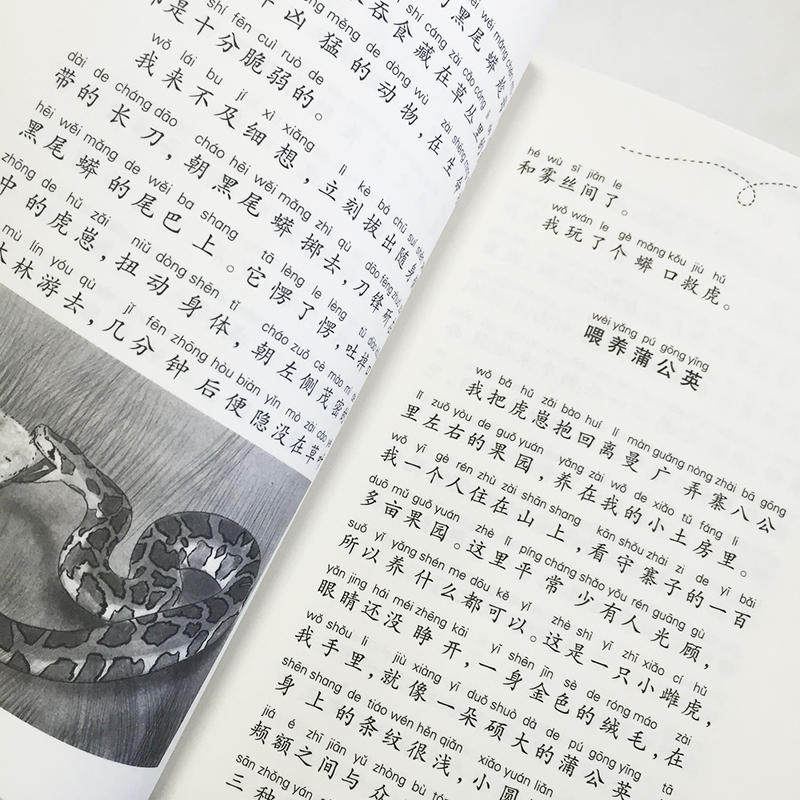 shí fēn cuì ruò de
是十分脆弱的。
凶猛的动物，在生
吞食藏在草丛里
黑尾蟒
wǒ lái bu jí xì xiǎng
我来不及细想，立刻拔出随身
dài de cháng dāo
带的长刀，朝黑尾蟒掷去，刀锋
hēi wěi mǎng de wěi ba shang
黑尾蟒的尾巴上。它愣了愣，吐掉
zhōng de hǔ zǎi niǔ dòng shēn tǐ
中的虎崽，扭动身体，朝左侧茂密
mù lín yóu qù jǐ fēn zhōng hòu biàn yǐn mò zài
木林游去，几分钟后便隐没在草
hé wù sī jiān le
和雾丝间了。
wǒ wán le gè mǎng kǒu jiù hǔ
我玩了个蟒口救虎。
wèi yǎng pú gōng yīng
喂养蒲公英
wǒ bǎ hǔ zǎi bào huí lí màn guǎng nòng zhài bā gōng
我把虎崽抱回离曼广弄寨八公
lǐ zuǒ yòu de guǒ yuán yǎng zài wǒ de xiǎo tǔ fáng li
里左右的果园，养在我的小土房里。
wǒ yī gè rén zhù zài shān shang kān shǒu zhài zi de yī bǎi
我一个人住在山上，看守寨子的一百
duō mǔ guǒ yuán zhè lǐ píng cháng shǎo yǒu rén guāng gù
多亩果园。这里平常少有人光顾，
suǒ yǐ yǎng shén me dōu kě yǐ zhè shì yī zhī xiǎo cí hǔ
所以养什么都可以。这是一只小雌虎，
yǎn jing hái méi zhēng kāi yī shēn jīn sè de róng máo zài
眼睛还没睁开，一身金色的绒毛，在
wǒ shǒu li jiù xiàng yī duǒ shuò dà de pú gōng yīng
我手里，就像一朵硕大的蒲公英
shēn shang de tiáo wén hěn qiǎn xiǎo yuán liǎn
身上的条纹很浅，小圆
jiá é zhī jiān yǔ zhòng
颊额之间与众
sān zhǒng yán
三种